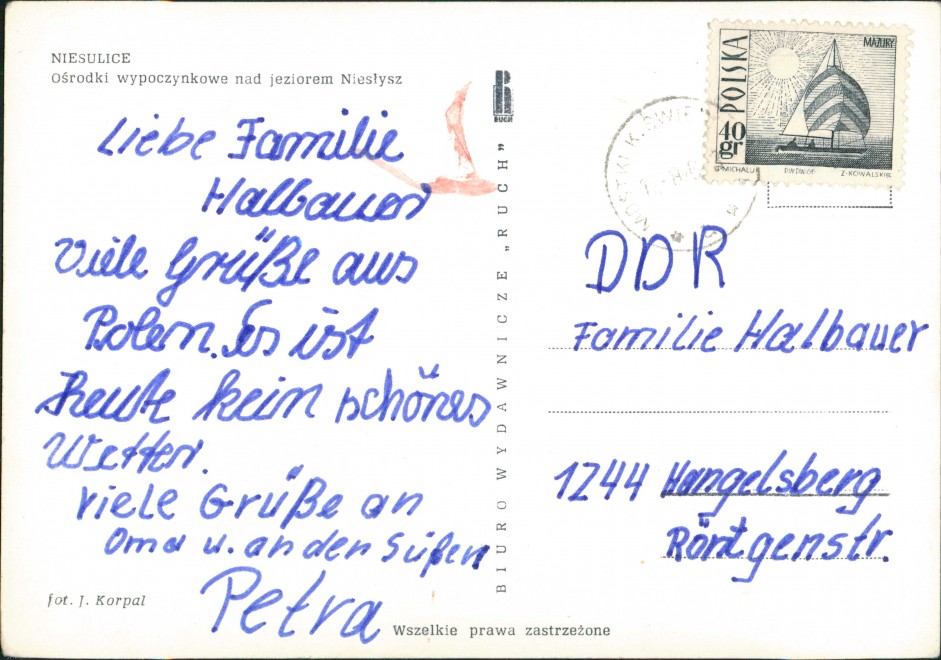 NIESULICE
Ośrodki wypoczynkowe nad jeziorem Niesłysz
Liebe Familie
Halbauer
Viele Grüße aus
Polen. Es ist
heute kein schönes
Wetter.
Viele Grüße an
Oma u. an den Süßen
Petra
fot. J. Korpal
Wszelkie prawa zastrzeżone
BIURO WYDAWNICZE „RUCH”
RUCH
POLSKA
MAZURY
40
gr
PWPW 66
Z. KOWALSKI
DDR
Familie Halbauer
1244 Hangelsberg
Röntgenstr.